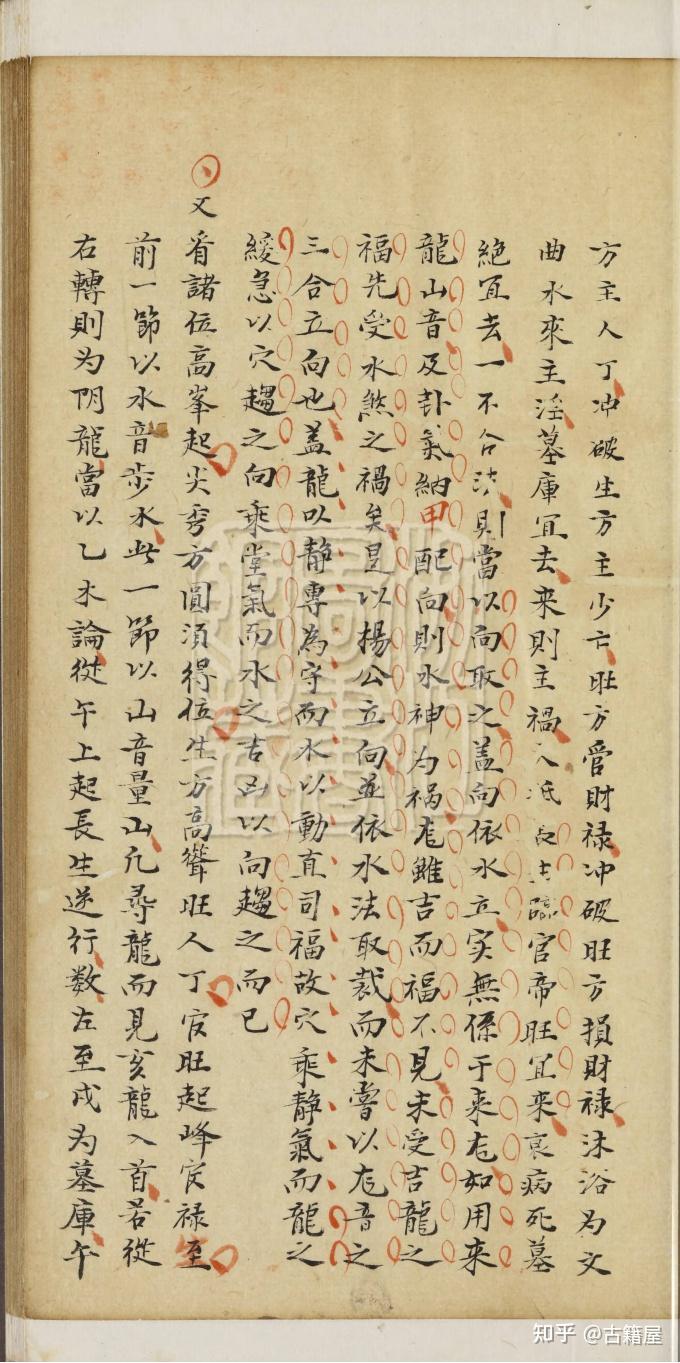 方主人丁冲破生方主少亡旺方管財禄冲破旺方損財禄沐浴为文
曲水來主淫墓庫宜去来則主禍臨官帝旺宜来衰病死墓
絶宜去一不合法則當以向取之盖向依水立实無係于来龙如用来
龍山音及卦氣納甲配向則水神为禍龙雖吉而福不見未受吉龍之
福先受水煞之禍矣是以楊公立向並依水法取裁而未嘗以龙音之
三合立向也盖龍以静專為守而水以動直司福故穴乘静氣而龍之
緩急以穴趨之向乘堂氣而水之吉凶以向趨之而已
又看諸位高峯起尖秀方圓須得位生方高聳旺人丁官旺起峰官禄至
前一節以水音步水此一節以山音量山凡尋龍而見亥龍入首若從
右轉則为阴龍當以乙木論從午上起長生逆行数左至戌为墓庫午
知乎 @古籍屋